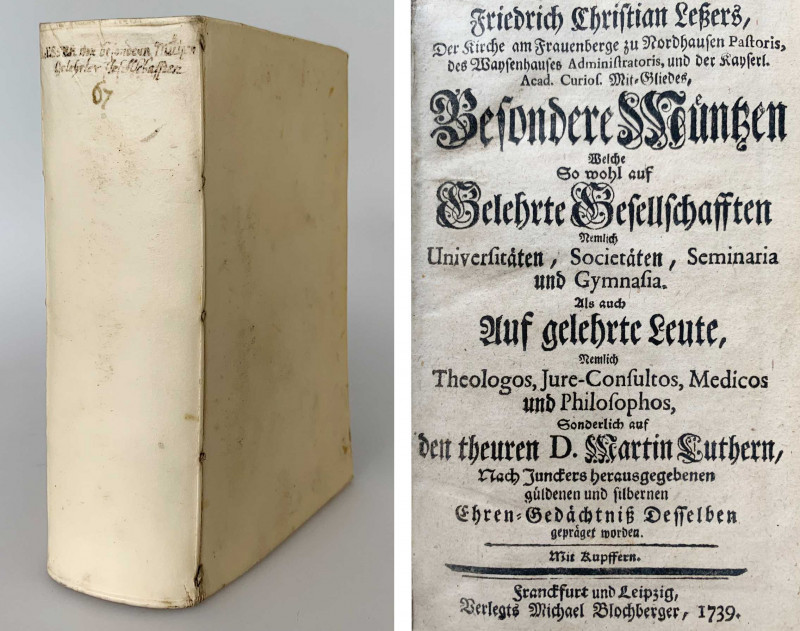 der besondern Müntzen
Gelehrter Gesellschafften
67
Friedrich Christian Leßers,
Der Kirche am Frauenberge zu Nordhausen Pastoris,
des Waysenhauses Administratoris, und der Kayserl.
Acad. Curios. Mit-Gliedes,
Besondere Müntzen
Welche
So wohl auf
Gelehrte Gesellschafften
Nemlich
Universitäten, Societäten, Seminaria
und Gymnasia.
Als auch
Auf gelehrte Leute,
Nemlich
Theologos, Jure-Consultos, Medicos
und Philosophos,
Sonderlich auf
den theuren D. Martin Luthern,
Nach Junckers herausgegebenen
güldenen und silbernen
Ehren-Gedächtniß Desselben
gepräget worden.
Mit Kupffern.
Franckfurt und Leipzig,
Verlegts Michael Blochberger, 1739.